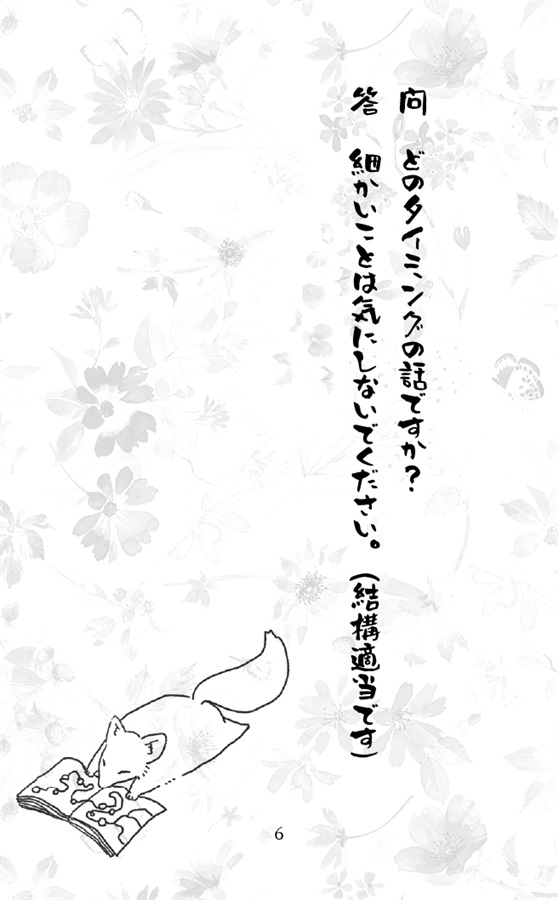 問　どのタイミングの話ですか？
答　細かいことは気にしないでください。（結構適当です）
6